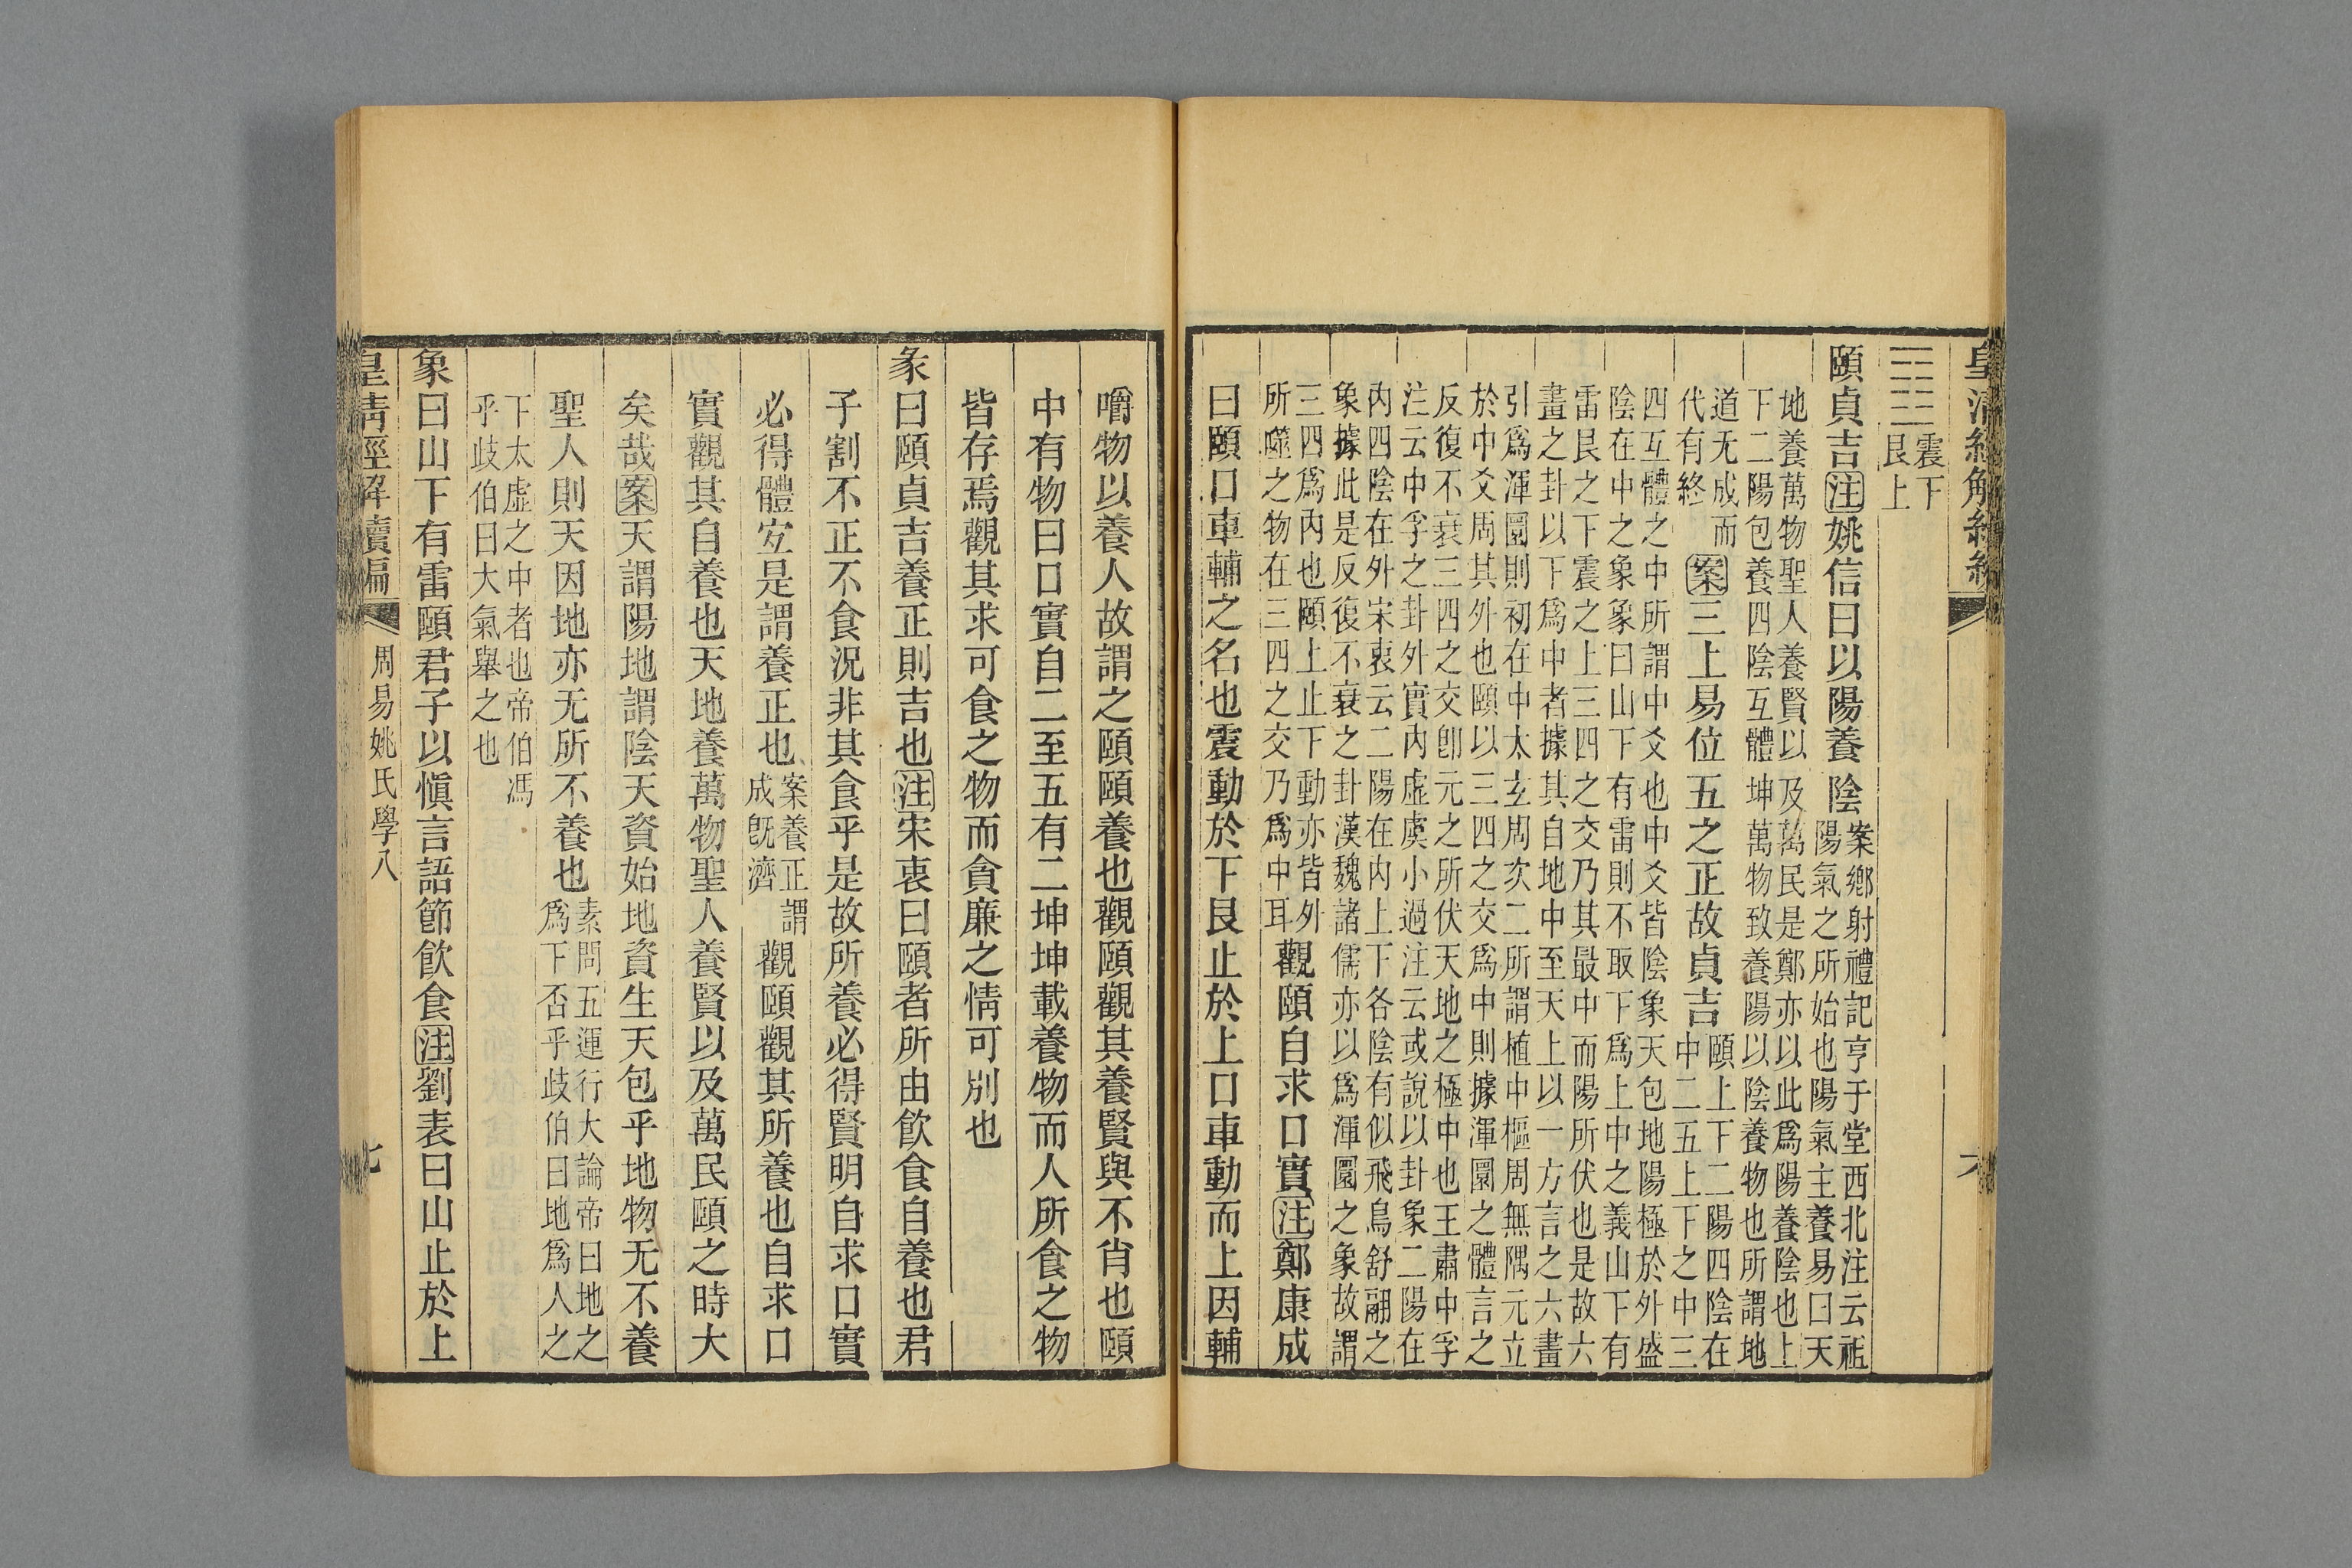 皇清經解續編
六
䷚
震下
艮上
頤貞吉注姚信曰以陽養陰
案鄉射禮記亨于堂西北注云祖
陽氣之所始也陽氣主養易曰天
地養萬物聖人養賢以及萬民是鄭亦以此爲陽養陰也上
下二陽包養四陰互體坤萬物致養陽以陰養物也所謂地
道无成而
代有終
案三上易位五之正故貞吉
頤上下二陽四陰在
中二五上下之中三
四互體之中所謂中爻也中爻皆陰象天包地陽極於外盛
陰在中之象象曰山下有雷則不取下爲上中之義山下有
雷艮之下震之上三四之交乃其最中而陽所伏也是故六
畫之卦以下爲中者據其自地中至天上以一方言之六畫
引爲渾圜則初在中太玄周次二所謂植中樞周無隅元立
於中爻周其外也頤以三四之交爲中則據渾圜之體言之
反復不衰三四之交卽元之所伏天地之極中也王肅中孚
注云中孚之卦外實內虛虞小過注云或說以卦象二陽在
內四陰在外宋衷云二陽在內上下各陰有似飛鳥舒翮之
象據此是反復不衰之卦漢魏諸儒亦以爲渾圜之象故謂
三四爲內也頤上止下動亦皆外
所噬之物在三四之交乃爲中耳
觀頤自求口實注鄭康成
曰頤口車輔之名也震動於下艮止於上口車動而上因輔
嚼物以養人故謂之頤頤養也觀頤觀其養賢與不肖也頤
中有物曰口實自二至五有二坤坤載養物而人所食之物
皆存焉觀其求可食之物而貪廉之情可別也
彖曰頤貞吉養正則吉也注宋衷曰頤者所由飲食自養也君
子割不正不食況非其食乎是故所養必得賢明自求口實
必得體宐是謂養正也
案養正謂
成旣濟
觀頤觀其所養也自求口
實觀其自養也天地養萬物聖人養賢以及萬民頤之時大
矣哉案天謂陽地謂陰天資始地資生天包乎地物无不養
聖人則天天因地亦无所不養也
素問五運行大論帝曰地之
爲下否乎歧伯曰地爲人之
下太虛之中者也帝伯馮
乎歧伯曰大氣舉之也
象曰山下有雷頤君子以愼言語節飲食注劉表曰山止於上
皇清經解續編
周易姚氏學八
七